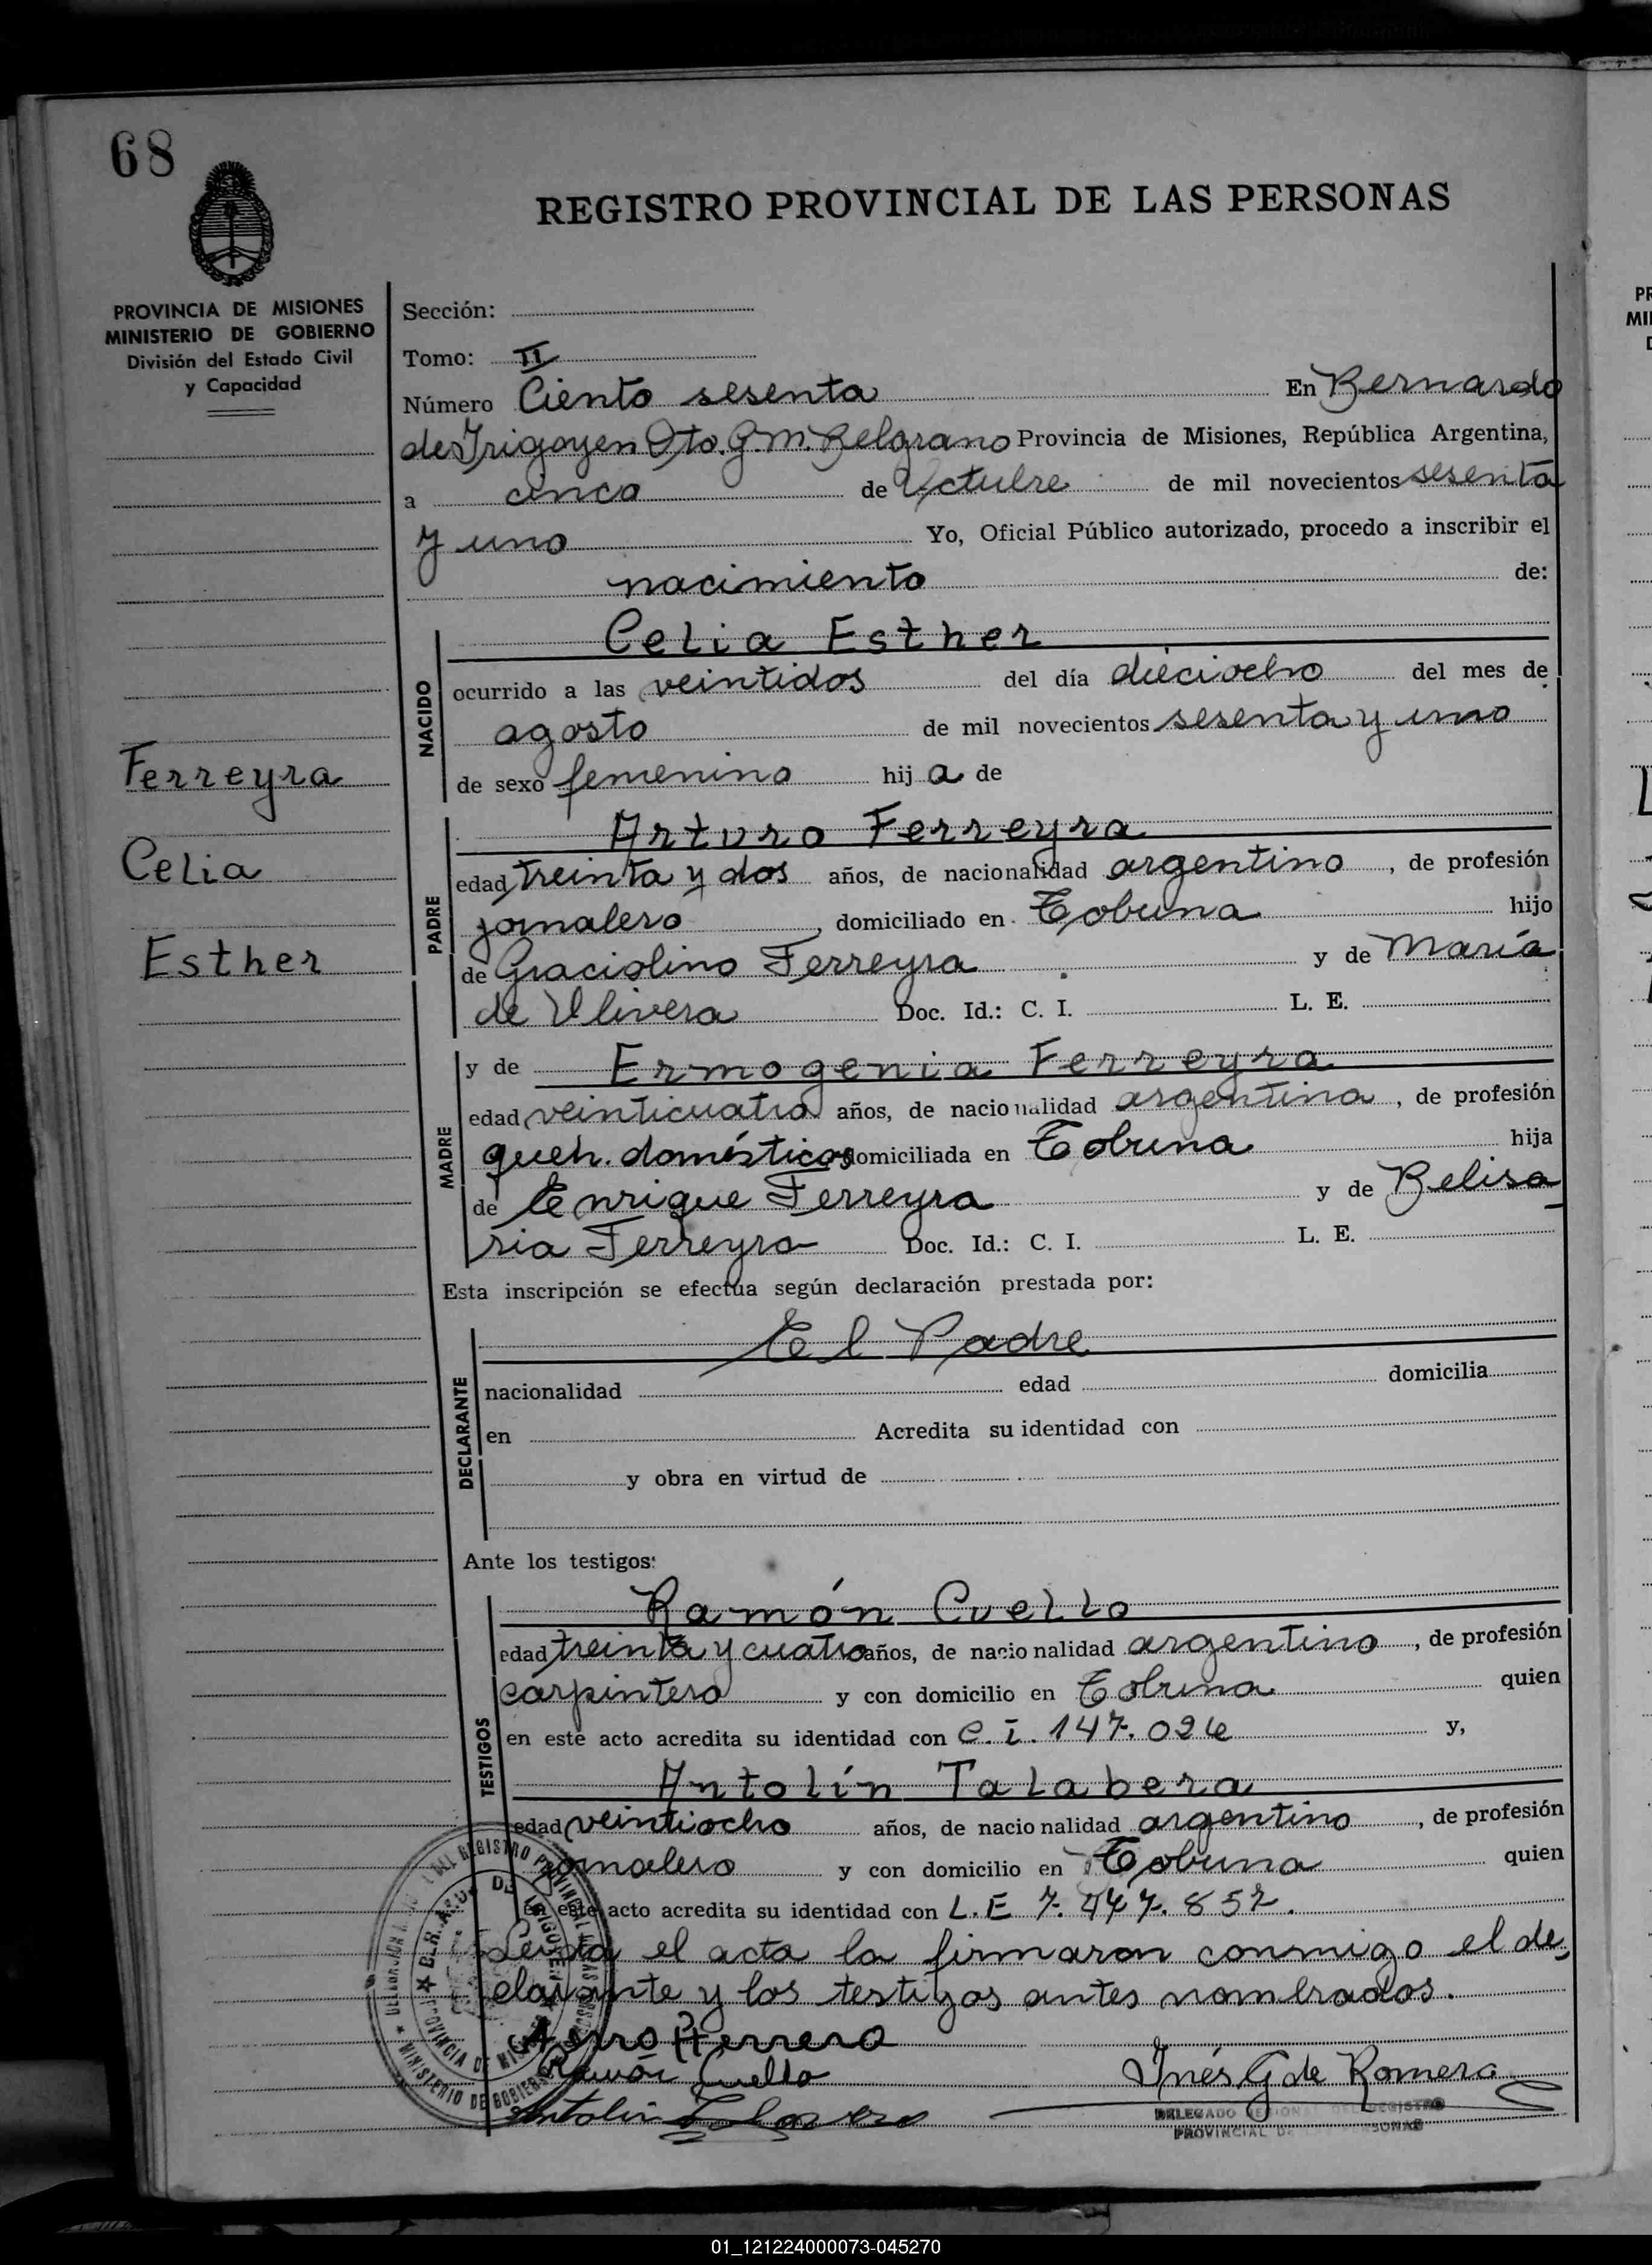 68
REGISTRO PROVINCIAL DE LAS PERSONAS
PROVINCIA DE MISIONES
MINISTERIO DE GOBIERNO
División del Estado Civil
y Capacidad
Ferreyra
Celia
Esther
Sección:
Tomo: II
Número Ciento sesenta En Bernardo
de Irigoyen Dto. G. M. Belgrano Provincia de Misiones, República Argentina,
a cinco de Octubre de mil novecientos sesenta
y uno Yo, Oficial Público autorizado, procedo a inscribir el
nacimiento de:
NACIDO
Celia Esther
ocurrido a las veintidos del día dieciocho del mes de
agosto de mil novecientos sesenta y uno
de sexo femenino hija de
PADRE
Arturo Ferreyra
edad treinta y dos años, de nacionalidad argentino, de profesión
jornalero, domiciliado en Tobuna hijo
de Graciolino Ferreyra y de María
de Olivera Doc. Id.: C. I. L. E.
MADRE
y de Ermogenia Ferreyra
edad veinticuatro años, de nacionalidad argentina, de profesión
queh. domésticos domiciliada en Tobuna hija
de Enrique Ferreyra y de Belisa-
ria Ferreyra Doc. Id.: C. I. L. E.
Esta inscripción se efectúa según declaración prestada por:
DECLARANTE
El Padre
nacionalidad edad domicilia
en Acredita su identidad con
y obra en virtud de
Ante los testigos:
TESTIGOS
Ramón Cuello
edad treinta y cuatro años, de nacionalidad argentino, de profesión
carpintero y con domicilio en Tobuna quien
en este acto acredita su identidad con C. I. 147.026 y,
Antolín Talabera
edad veintiocho años, de nacionalidad argentino, de profesión
jornalero y con domicilio en Tobuna quien
en este acto acredita su identidad con L. E 7.447.852.
Leida el acta la firmaron conmigo el de-
clarante y los testigos antes nombrados.
Ramón Cuello
Antolin
Inés G de Romero
DELEGADO REGIONAL DEL REGISTRO
PROVINCIAL DE PERSONAS
01_121224000073-045270